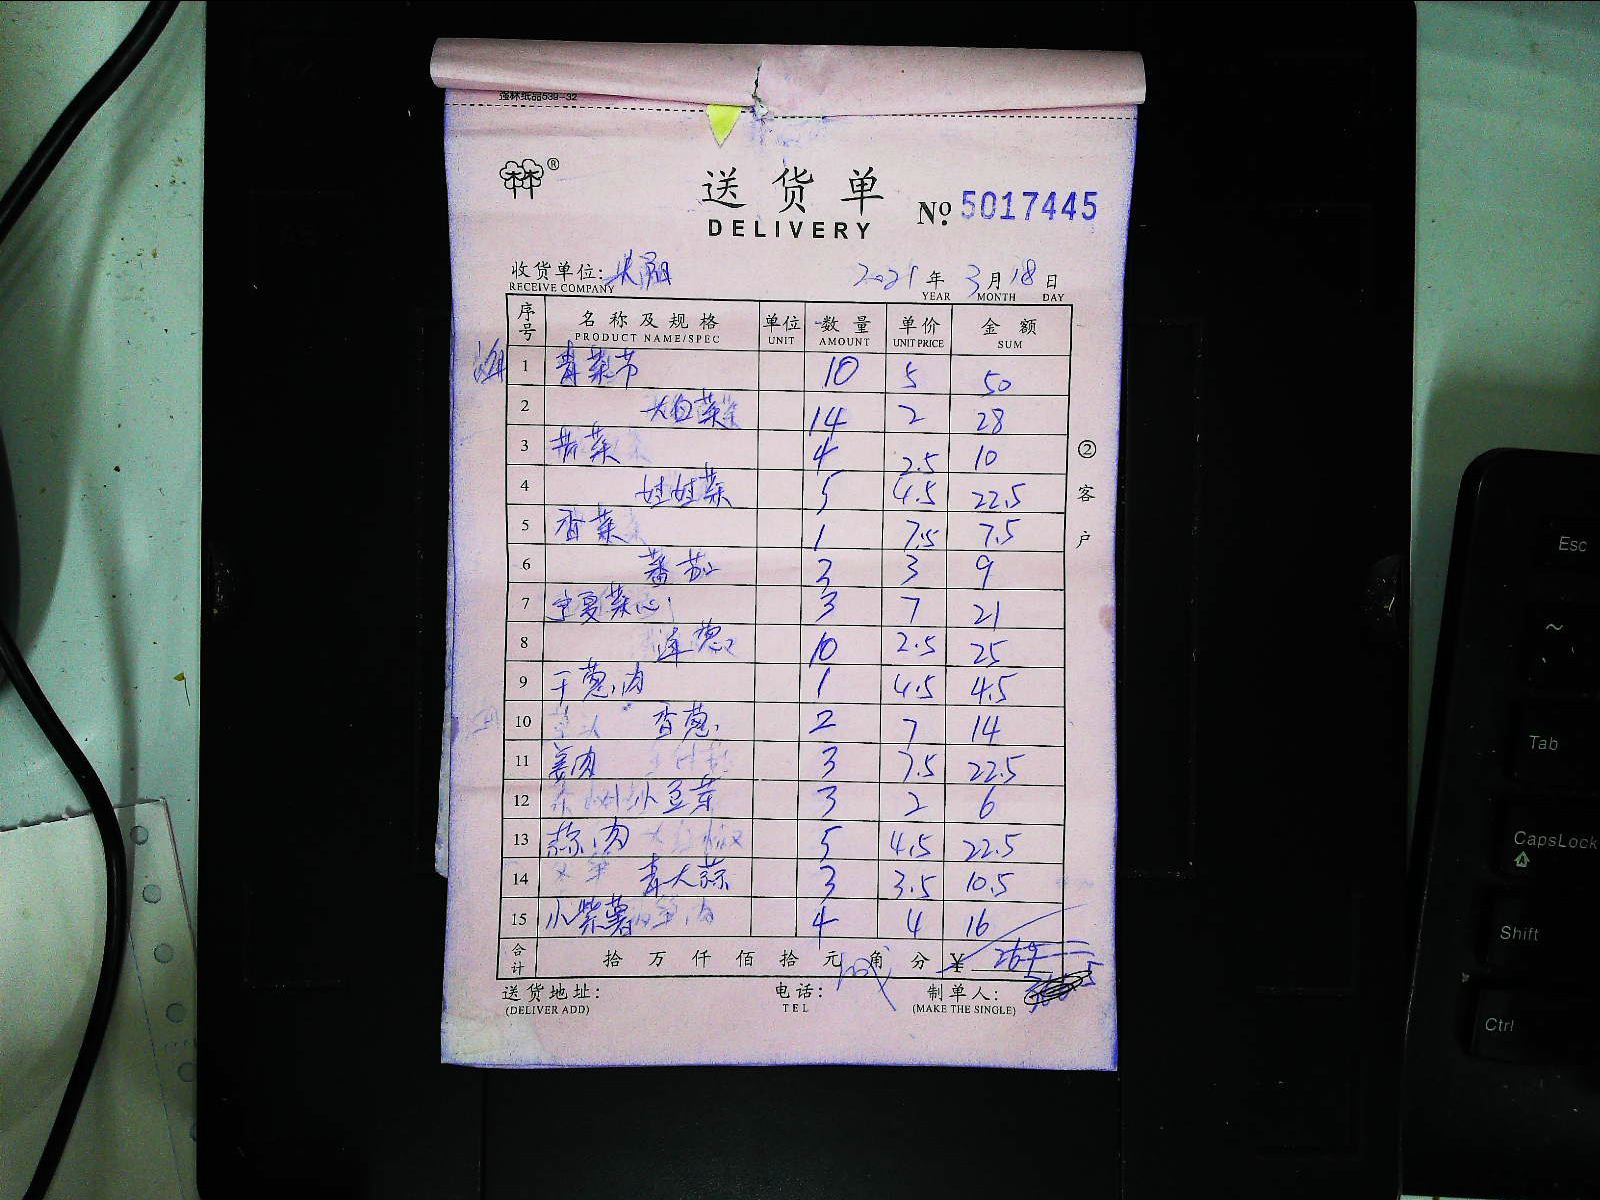 强林纸品539-32
林林®
送货单
DELIVERY
No. 5017445
收货单位:
RECEIVE COMPANY
2021年 3月 18日
YEAR MONTH DAY
序号 名称及规格 单位 数量 单价 金额
PRODUCT NAME/SPEC UNIT AMOUNT UNIT PRICE SUM
1 青菜节 10 5 50
2 大白菜 14 2 28
3 芥菜 4 2.5 10
4 娃娃菜 5 4.5 22.5
5 香菜 1 7.5 7.5
6 蕃茄 3 3 9
7 宁夏菜心 3 7 21
8 洋葱 10 2.5 25
9 干葱肉 1 4.5 4.5
10 香葱 2 7 14
11 姜肉 3 7.5 22.5
12 豆芽 3 2 6
13 蒜肉 5 4.5 22.5
14 青大蒜 3 3.5 10.5
15 小紫薯 4 4 16
合计 拾 万 仟 佰 拾 元 角 分 ¥ 269
送货地址: 电话: 制单人:
(DELIVER ADD) TEL (MAKE THE SINGLE)
②客户
Esc
~
Tab
CapsLock
Shift
Ctrl